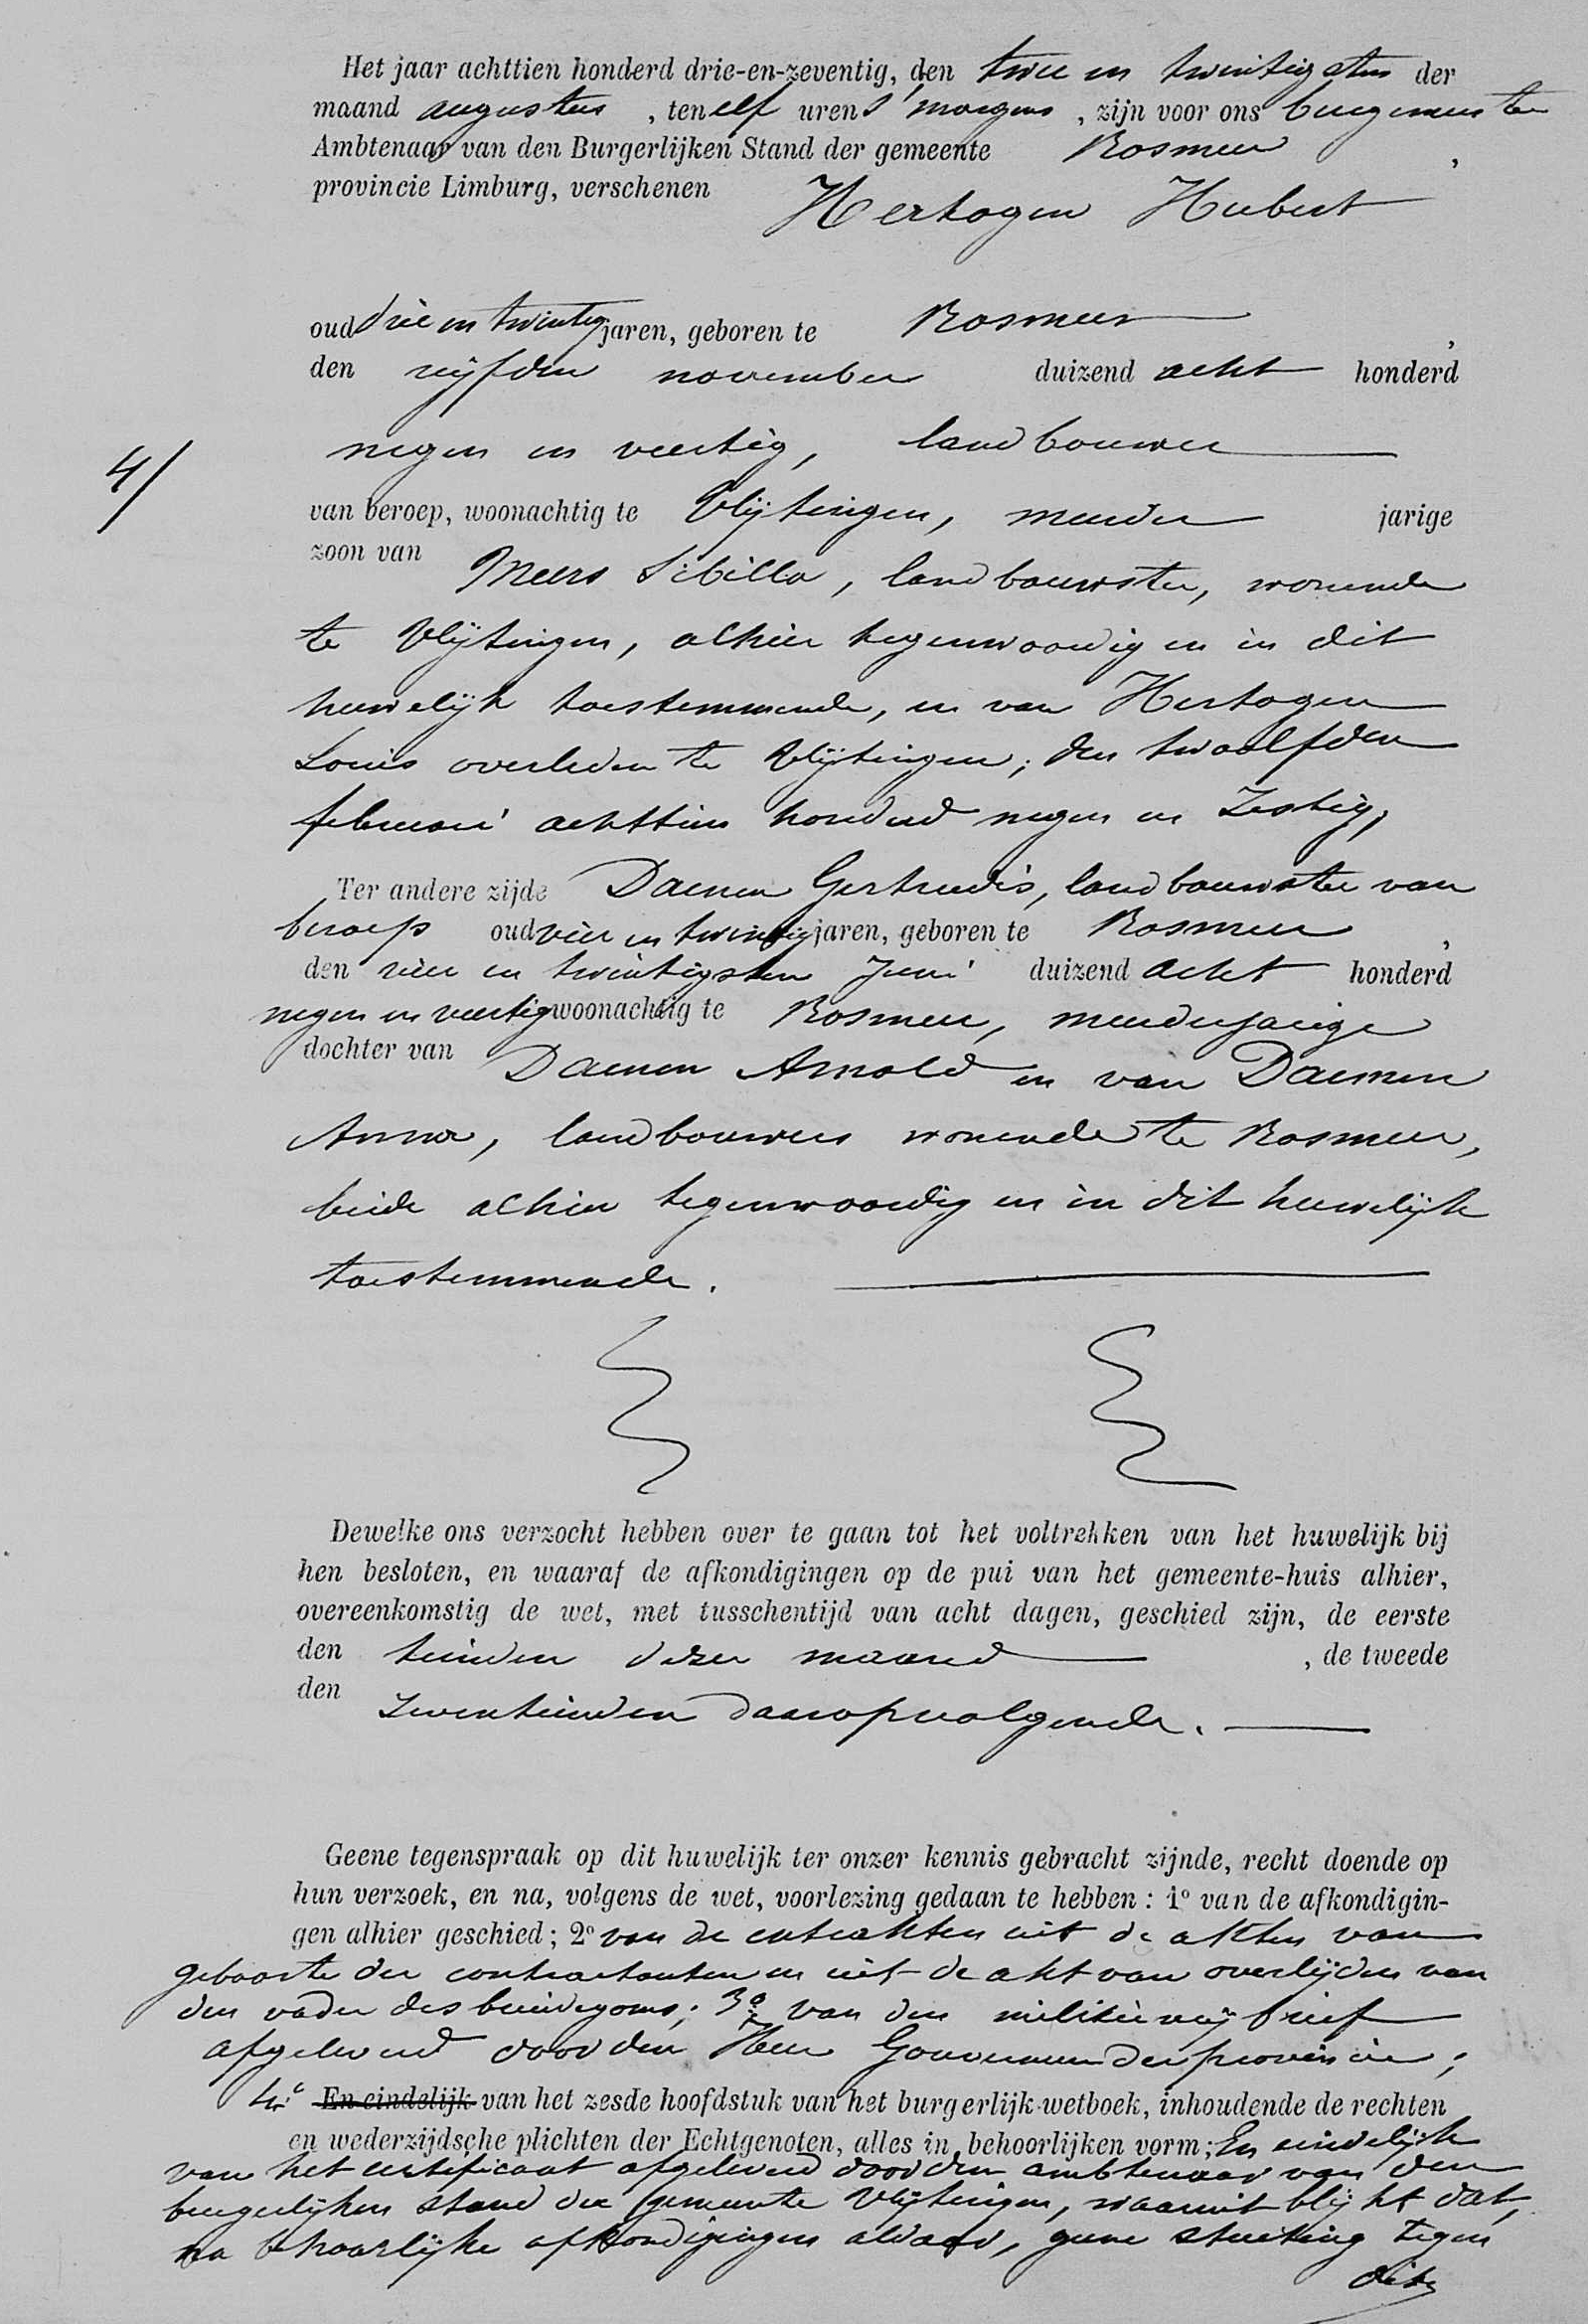 Het jaar achttien honderd drie-en-zeventig, den twee en twintigsten der
maand augustus , ten elf uren 's morgens , zijn voor ons burgemeester
Ambtenaar van den Burgerlijken Stand der gemeente Rosmeer ,
provincie Limburg, verschenen
Hertogen Hubert
oud drie en twintig jaren, geboren te Rosmeer ,
den vijfden november duizend acht honderd
negen en veertig, landbouwer
4/
van beroep, woonachtig te Vlijtingen, meerder jarige
zoon van Meers Sibilla, landbouwster, wonende
te Vlijtingen, alhier tegenwoordig en in dit
huwelijk toestemmende, en van Hertogen
Louis overleden te Vlijtingen; den twaalfden
februari achttien honderd negen en Zestig,
Ter andere zijde Daenen Gertrudis, landbouwster van
beroep oud vier en twintig jaren, geboren te Rosmeer ,
den vier en twintigsten Juni duizend acht honderd
negen en veertig woonachtig te Rosmeer, meerderjarige
dochter van Daenen Arnold en van Daemen
Anna, landbouwers wonende te Rosmeer,
beide alhier tegenwoordig en in dit huwelijk
toestemmende.
Dewelke ons verzocht hebben over te gaan tot het voltrekken van het huwelijk bij
hen besloten, en waaraf de afkondigingen op de pui van het gemeente-huis alhier,
overeenkomstig de wet, met tusschentijd van acht dagen, geschied zijn, de eerste
den tienden dezer maand , de tweede
den zeventienden daaropvolgende.
Geene tegenspraak op dit huwelijk ter onzer kennis gebracht zijnde, recht doende op
hun verzoek, en na, volgens de wet, voorlezing gedaan te hebben : 1° van de afkondigin-
gen alhier geschied ; 2° van de extrakten uit de akten van
geboorte der contractanten en uit de akt van overlijden van
den vader des bruidegoms; 3° van den militievrijbrief
afgeleverd door den Heer Gouverneur der provincie;
4° En eindelijk van het zesde hoofdstuk van het burgerlijk-wetboek, inhoudende de rechten
en wederzijdsche plichten der Echtgenoten, alles in behoorlijken vorm; En eindelijk
van het certificaat afgeleverd door den ambtenaar van den
burgerlijken stand der gemeente Vlijtingen, waaruit blijkt dat,
na behoorlijke afkondigingen aldaar, geene stuiting tegen
dit